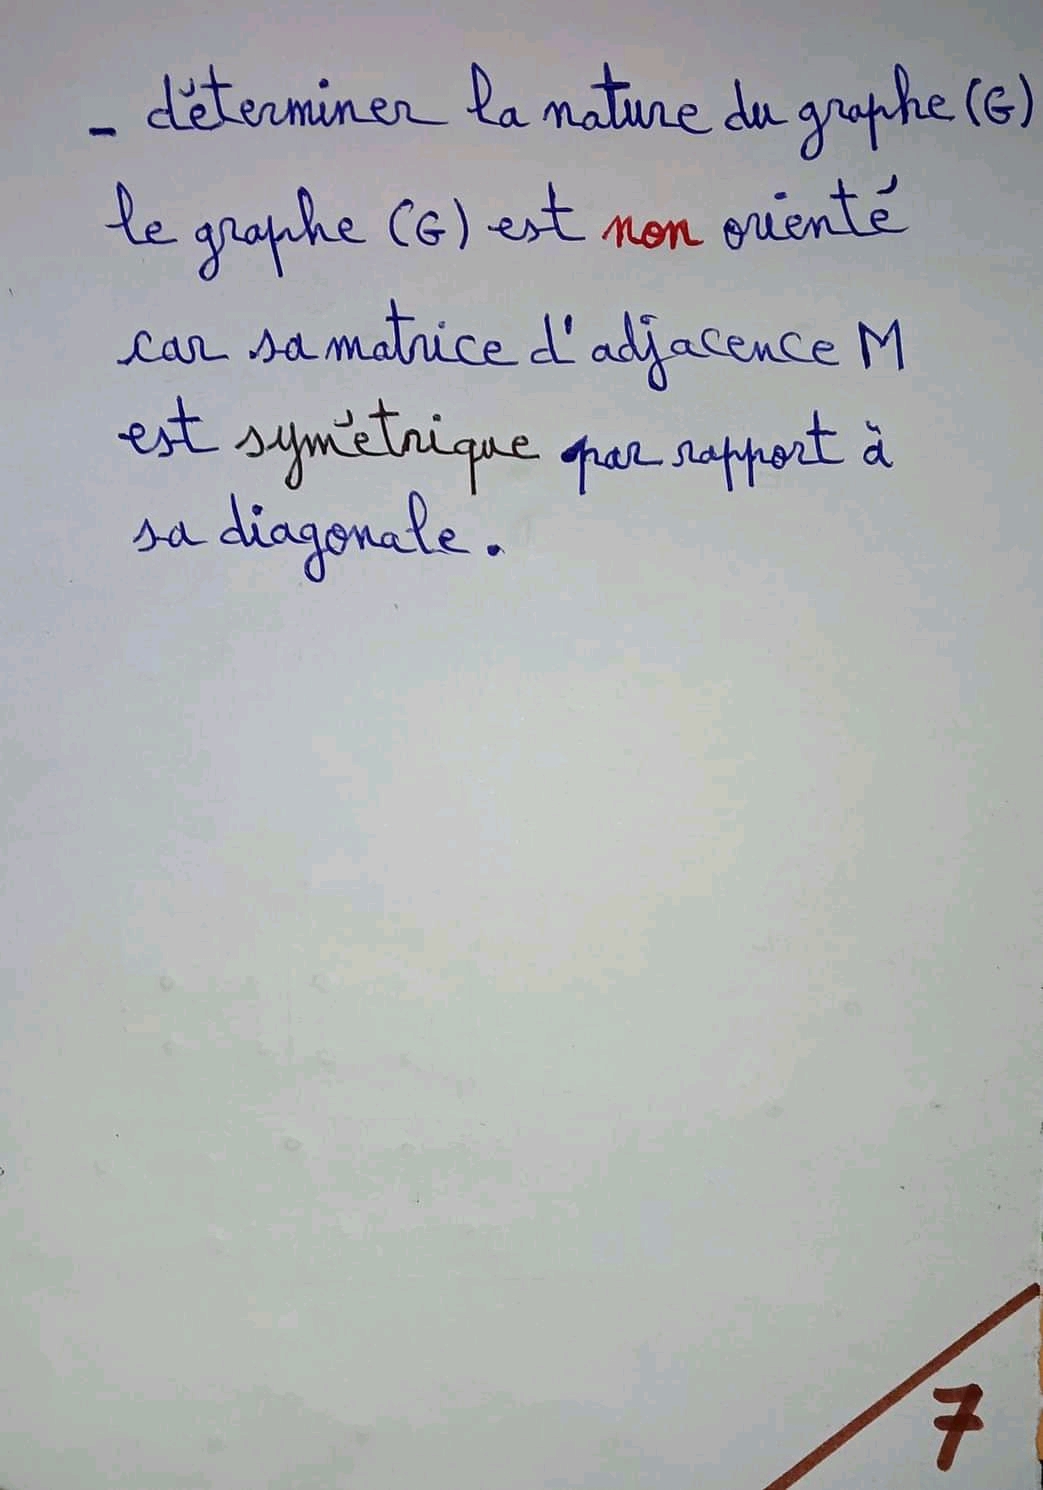 - déterminer la nature du graphe (G)
le graphe (G) est non orienté
car sa matrice d'adjacence M
est symétrique par rapport à
sa diagonale.
7